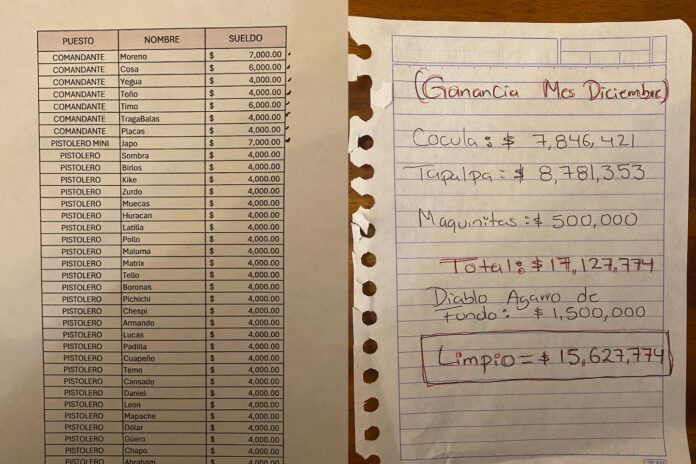 PUESTO NOMBRE SUELDO
COMANDANTE Moreno $ 7,000.00
COMANDANTE Cosa $ 6,000.00
COMANDANTE Yegua $ 4,000.00
COMANDANTE Toño $ 4,000.00
COMANDANTE Timo $ 6,000.00
COMANDANTE TragaBalas $ 4,000.00
COMANDANTE Placas $ 4,000.00
PISTOLERO MINI Japo $ 7,000.00
PISTOLERO Sombra $ 4,000.00
PISTOLERO Birlos $ 4,000.00
PISTOLERO Kike $ 4,000.00
PISTOLERO Zurdo $ 4,000.00
PISTOLERO Muecas $ 4,000.00
PISTOLERO Huracan $ 4,000.00
PISTOLERO Latilla $ 4,000.00
PISTOLERO Pollo $ 4,000.00
PISTOLERO Maluma $ 4,000.00
PISTOLERO Matrix $ 4,000.00
PISTOLERO Tello $ 4,000.00
PISTOLERO Boronas $ 4,000.00
PISTOLERO Pichichi $ 4,000.00
PISTOLERO Chespi $ 4,000.00
PISTOLERO Armando $ 4,000.00
PISTOLERO Lucas $ 4,000.00
PISTOLERO Padilla $ 4,000.00
PISTOLERO Cuapeño $ 4,000.00
PISTOLERO Temo $ 4,000.00
PISTOLERO Cansado $ 4,000.00
PISTOLERO Daniel $ 4,000.00
PISTOLERO Leon $ 4,000.00
PISTOLERO Mapache $ 4,000.00
PISTOLERO Dólar $ 4,000.00
PISTOLERO Güero $ 4,000.00
PISTOLERO Chapo $ 4,000.00
PISTOLERO Abraham $ 4,000.00
(Ganancia Mes Diciembre)
Cocula: $ 7,846,421
Tapalpa: $ 8,781,353
Maquinitas: $ 500,000
Total: $ 17,127,774
Diablo Agarro de
fundo: $ 1,500,000
Limpio = $ 15,627,774